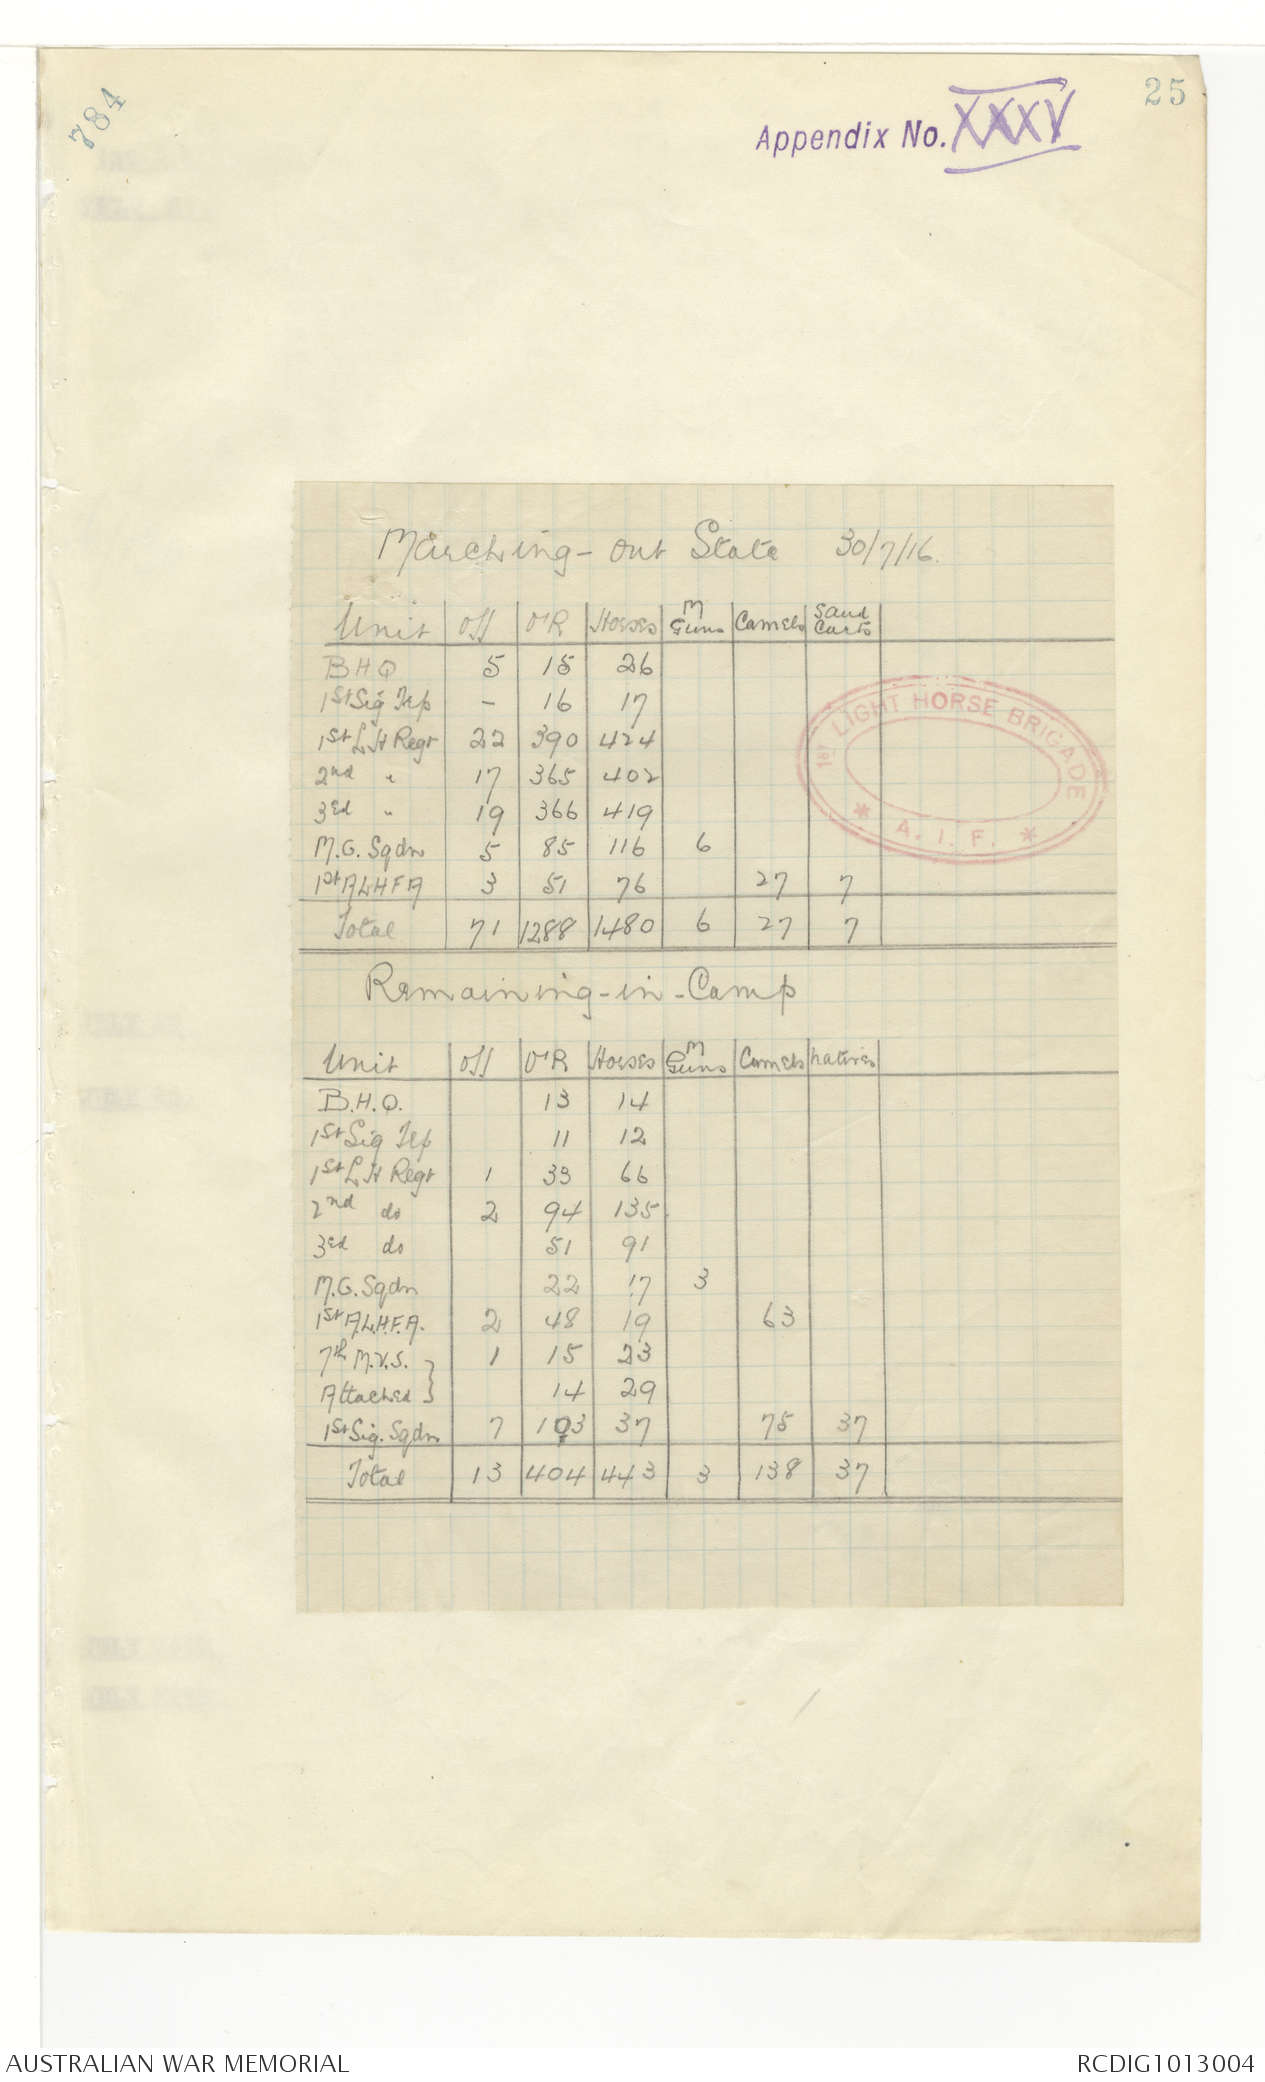 784
25
Appendix No. XXXV
Marching-out State 30/7/16.
Unit Off O'R Horses M Guns Camels Sand Carts
B H Q 5 15 26
1st Sig Trp - 16 17
1st L H Regt 22 390 424
2nd " 17 365 402
3rd " 19 366 419
M.G. Sqdn 5 85 116 6
1st A L H F A 3 51 76 27 7
Total 71 1288 1480 6 27 7
1ST LIGHT HORSE BRIGADE
* A. I. F. *
Remaining-in-Camp
Unit Off O'R Horses M Guns Camels natives
B.H.Q. 13 14
1st Sig Trp 11 12
1st L H Regt 1 33 66
2nd do 2 94 135
3rd do 51 91
M.G. Sqdn 22 17 3
1st A.L.H.F.A. 2 48 19 63
7th M.V.S. } 1 15 23
Attached } 14 29
1st Sig. Sqdn 7 103 37 75 37
Total 13 404 443 3 138 37
AUSTRALIAN WAR MEMORIAL
RCDIG1013004